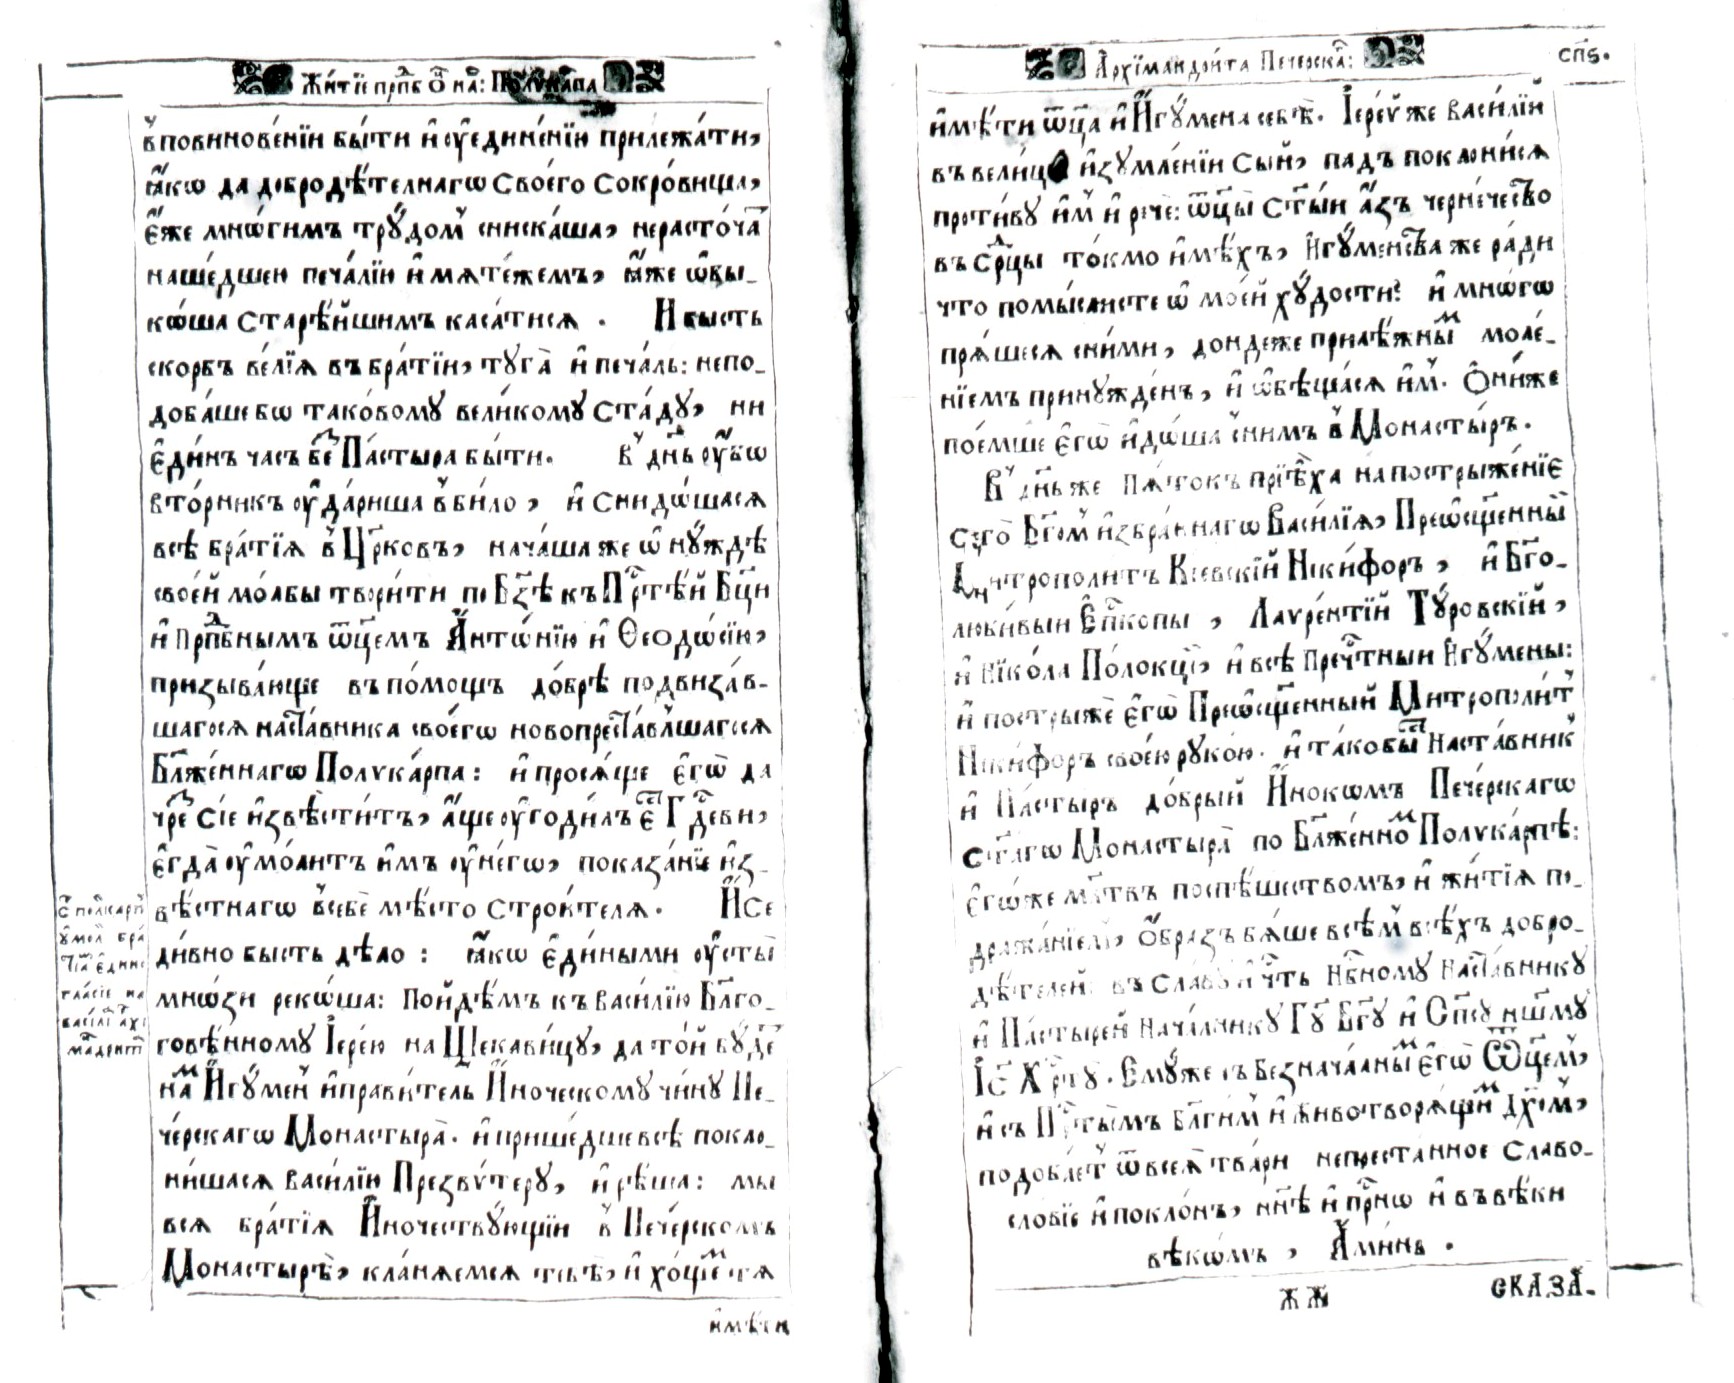 Житїе прпⷣб ѻ҃ на҃: Полѵка́рпа
в̾повинове́нїи бы́ти и҆ оу҆едине́нїю прилежа́ти,
ꙗ҆́кѡ да добродѣ́телнагѡ своегѡ̀ сокро́вища,
є҆́же мнѡ́гимъ трꙋдо́м снискáша, нерасто́чат
наше́дшею печа́лїю и҆ мѧте́жемъ, ꙗ҆́же ѡ҆бы-
ко́ша старѣ́йшимъ каса́тисѧ. И҆ бысть
скорбъ ве́лїѧ въ бра́тїи, тꙋга̀ и҆ печа́ль: непо-
доба́ше бѡ тако́вомꙋ вели́комꙋ ста́дꙋ, ни
є҆ди́нъ часъ беⷥ Па́стырѧ бы́ти. В̾ дн҃ь оу҆́бѡ
вто́рникъ оу҆да́риша в̾би́ло, и҆ снидо́шасѧ
всѣ бра́тїѧ в̾ Цр҃ковъ, нача́ша же ѡ҆ нꙋ́ждѣ
свое́й мо́лбы твори́ти по Бз҃ѣ къ Прⷭ҇тѣ́й Бц҃и
и҆ Прпⷣбнымъ ѿц҃емъ А҆нтѡ́нїю и҆ Ѳеодѡ́сїю,
призыва́юще въ по́мощъ до́брѣ подвиза́в-
шагосѧ наста́вника своегѡ̀ новопреста́влшагосѧ
Бл҃же́ннагѡ Полѵка́рпа: и҆ прося́ще є҆гѡ̀ да
чреⷥ сїе и҆звѣсти́тъ, а҆́ще оу҆годи́лъ єⷭ҇ Гдⷭ҇еви,
є҆гда̀ оу҆мо́литъ и҆мъ оу҆ не́гѡ, показа́нїе и҆з-
вѣ́стнагѡ в̾себѐ мѣ́сто строи́телѧ. И҆ се
ди́вно бысть дѣ́ло: ꙗ҆́кѡ є҆ди́ными оу҆сты̀
мнѡ́зи рекѡ́ша: По́йдѣмъ къ Васи́лїю Бл҃го-
говѣ́нномꙋ І҆ере́ю на Щекави́цꙋ, да то́й бꙋ́деⷮ
наⷨ И҆гꙋ́мен и҆ прави́тель И҆́ноческомꙋ чи́нꙋ Пе-
че́рскагѡ Монастырѧ̀. и҆ прише́дше всѣ покло-
ни́шасѧ Васи́лїю Презвѵ́терꙋ, и҆ рѣ́ша: мы
всѧ бра́тїѧ И҆ночествꙋ́ющїи в̾ Пече́рскомъ
Монастырѣ̀, кла́нѧемсѧ тебѣ̀, и҆ хо́щеⷨ тѧ
и҆мѣ́ти
А҆рхїмандри́та Пече́рскаⷢ:
сп҃ѕ.
и҆мѣ́ти ѿц҃а и҆ И҆гꙋ́мена себѣ̀. І҆ере́й же Васи́лїй
въ вели́цѣ и҆зꙋмле́нїи сый, падъ поклони́сѧ
проти́вꙋ и҆м и҆ речѐ: ѿц҃ы ст҃ы́и а҆́зъ черне́чество
въ срⷣцы то́кмо и҆мѣ́хъ, И҆гꙋ́менства же ра́ди
что помы́слисте ѡ҆ мое́й хꙋ́дости? и҆ мнѡ́гѡ
прѧ́шесѧ сни́ми, до́ндеже прилѣ́жныⷨ моле́-
нїемъ принꙋжде́нъ, и҆ ѡ҆бѣща́сѧ и҆́м. Ѻ҆ни́же
пое́мше є҆гѡ̀ и҆до́ша сни́мъ в̾ Монасты́ръ.
В̾ дн҃ь же пѧ́токъ прїѣ́ха на пострыже́нїе
сегѡ̀ Бг҃ом и҆збра́ннагѡ Васи́лїѧ, Прешсщ҃е́нный
Митрополи́тъ Кїевскїй Ники́форъ, и҆ Бг҃о-
люби́выи Єпⷭ҇копы, Лаѵре́нтїй Тꙋ́ровскїй,
и҆ Нїко́ла По́лоцкїй, и҆ всѣ пречⷭ҇тныи И҆гꙋ́мены:
и҆ постры́же є҆гѡ̀ Прешсщ҃е́нный Митрополи́т
Ники́форъ свое́ю рꙋко́ю. и҆ та́ко быⷭ҇ Наста́вник
и҆ Па́стыръ до́брый И҆́нокѡмъ Пече́рскагѡ
ст҃а́гѡ Монастырѧ̀ по Бл҃же́нноⷨ Полѵка́рпѣ:
є҆гѡ́же мл҃твъ поспѣ́шеством, и҆ житїѧ̀ по-
дража́нїем, ѻ҆́бразъ бѧ́ше всѣ́м всѣ́хъ добро-
дѣ́телей: въ сла́вꙋ и҆ чⷭ҇ть Нбⷭ҇номꙋ Наста́вникꙋ
и҆ Па́стырей Нача́лникꙋ Гдⷭ҇ꙋ Бг҃ꙋ и҆ Сп҃сꙋ на́шемꙋ
І҆с҃ Хрⷭ҇тꙋ̀. Е҆мꙋ́же съ Безнача́лныⷨ є҆гѡ̀ Ѿц҃ем,
и҆ съ Прⷭ҇ты́мъ Бл҃ги́м и҆ животворѧ́щиⷨ Дх҃ом,
подоба́ет ѿ всеѧ̀ тва́ри непреста́нное славо-
сло́вїе и҆ покло́нъ, нн҃ѣ и҆ прⷭ҇нѡ и҆ въ вѣ́ки
вѣкѡ́мъ, А҆ми́нь.
Ж Ж
СКАЗА́-